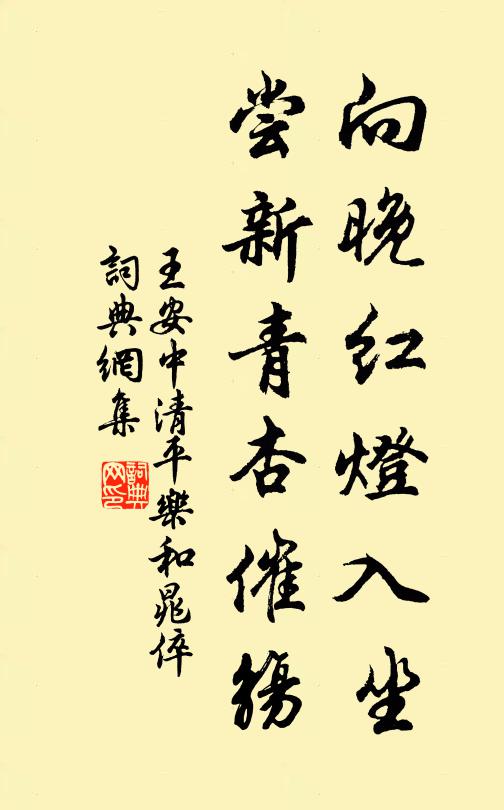 向晚红燈入坐
尝新青杏催觴
王安中清平樂和晁倅
詞典網集
詞典网印